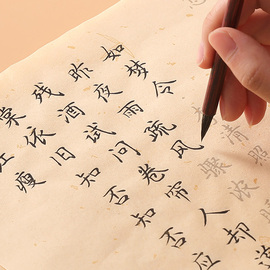 如梦令 清照
昨夜雨疏风骤浓
残酒试问卷帘人却道
棠依旧知否知否应
红瘦